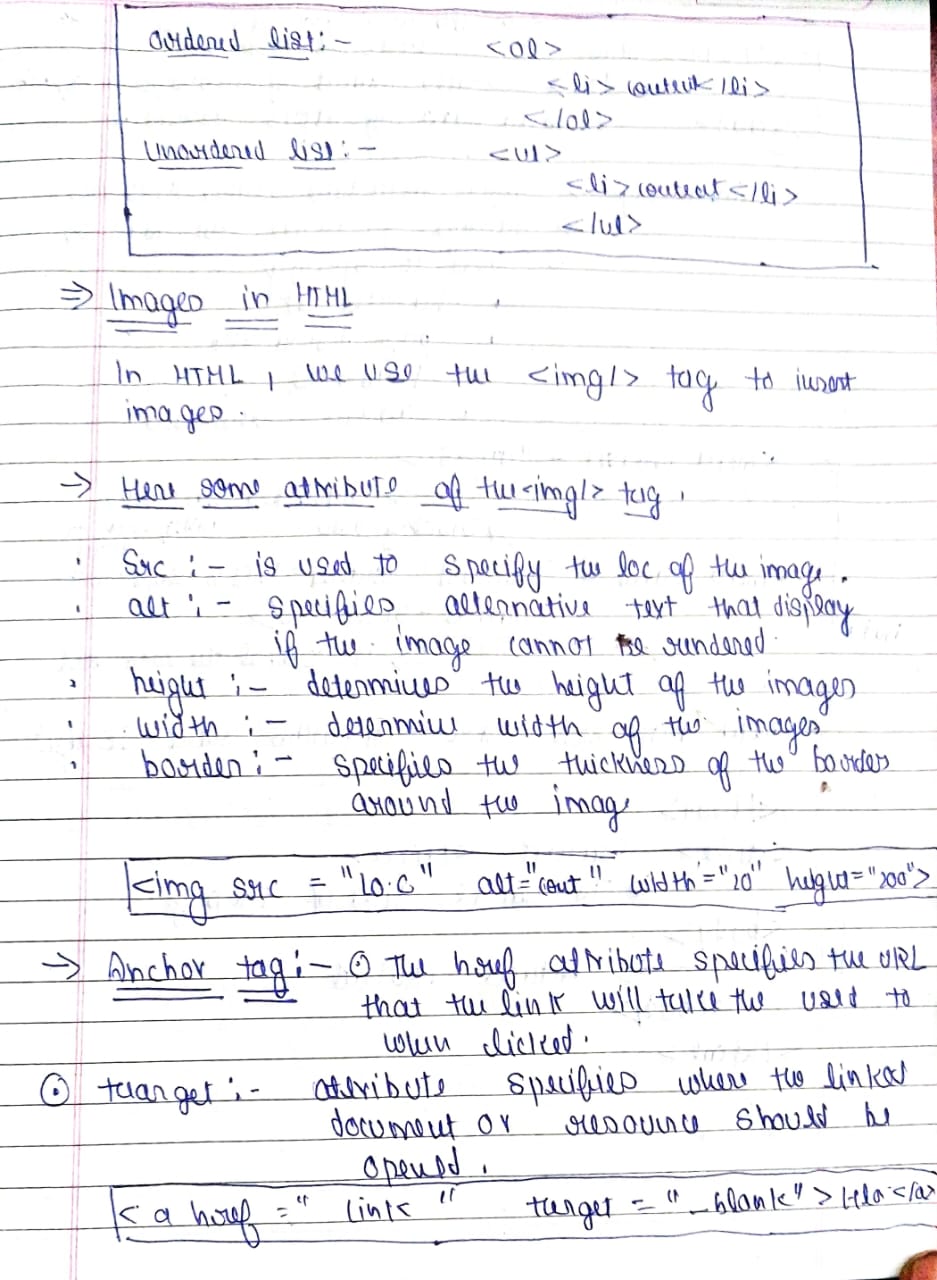 Ordered list :- <ol>
<li> content /li>
</ol>
Unordered list :- <ul>
<li> content </li>
</ul>
⇒ Images in HTML
In HTML, we use the <img/> tag to insert
images.
→ Here some attribute of the <img/> tag.
· Src :- is used to specify the loc of the image.
· alt :- specifies alternative text that display
if the image cannot be rendered.
· height :- determines the height of the images
· width :- determine width of the images
· border :- specifies the thickness of the border
around the image
<img src = "lo.c" alt="cout" width="20" height="200">
→ Anchor tag :- ⊙ The href attribute specifies the URL
that the link will take the used to
when clicked.
⊙ target :- attribute specifies where the linked
document or resource should be
opened.
<a href = "link" target = "_blank"> </a>